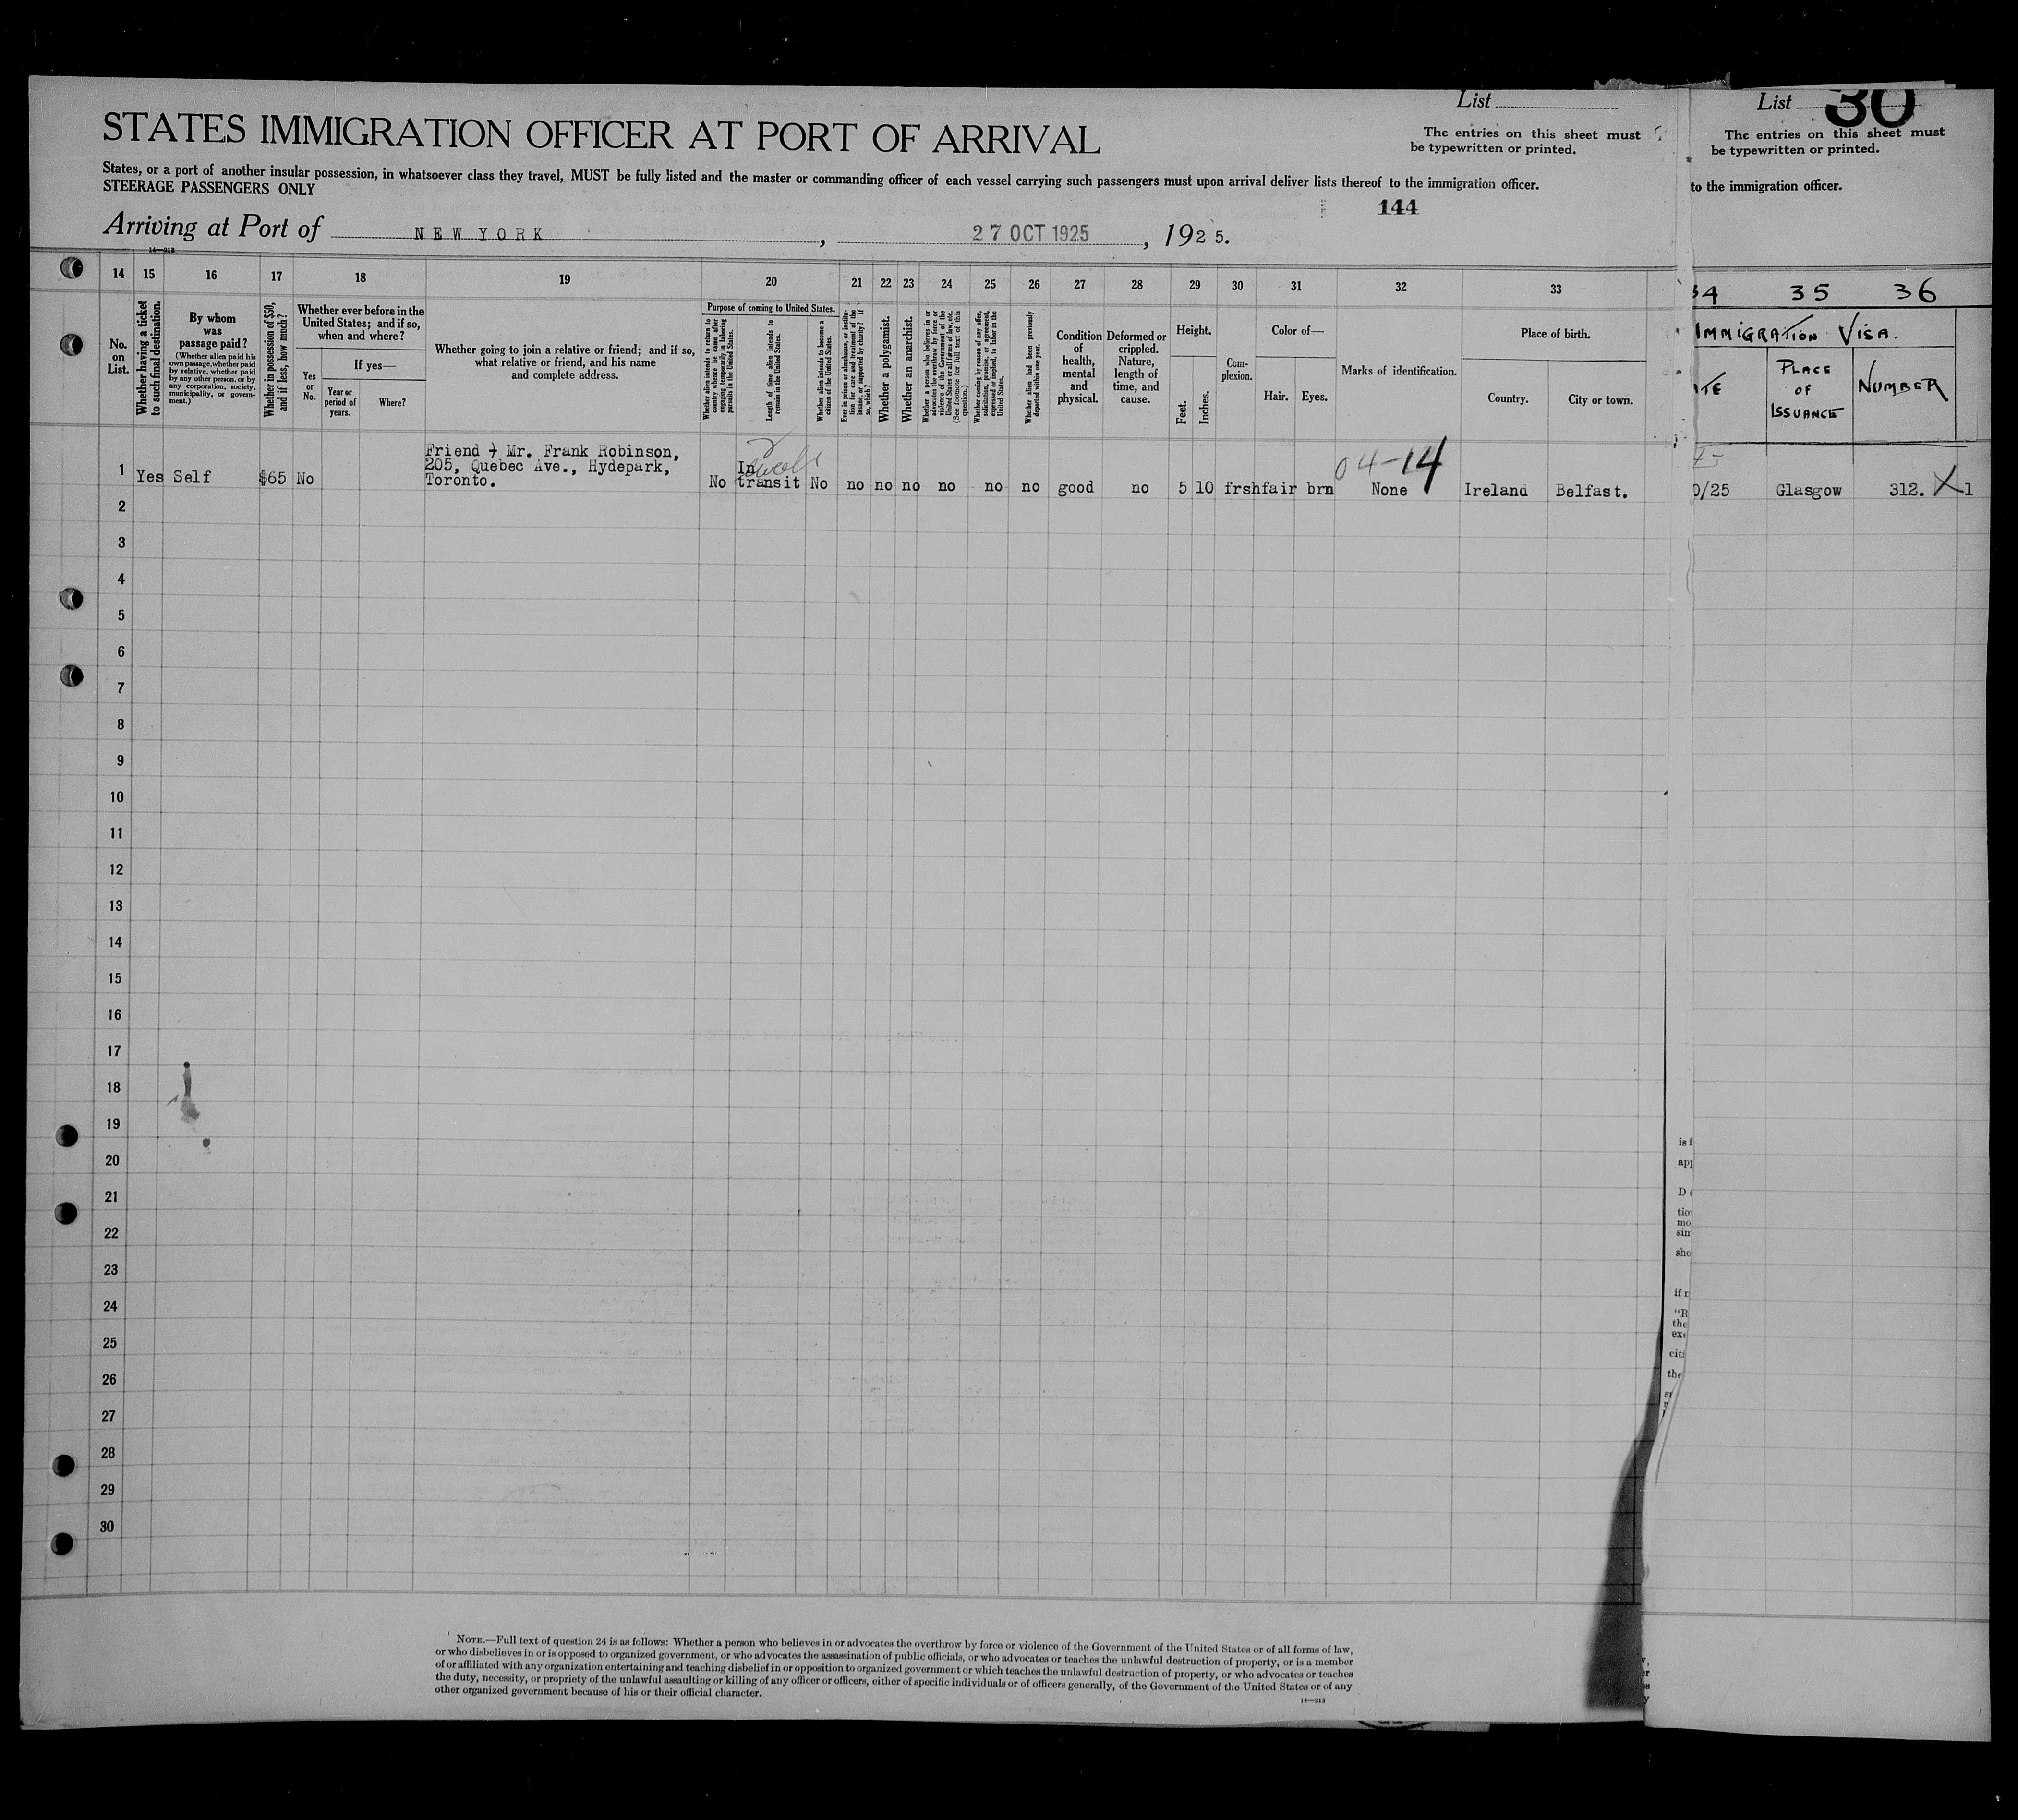 List
List 30
STATES IMMIGRATION OFFICER AT PORT OF ARRIVAL
The entries on this sheet must
be typewritten or printed.
The entries on this sheet must
be typewritten or printed.
States, or a port of another insular possession, in whatsoever class they travel, MUST be fully listed and the master or commanding officer of each vessel carrying such passengers must upon arrival deliver lists thereof to the immigration officer.
to the immigration officer.
STEERAGE PASSENGERS ONLY
144
Arriving at Port of NEW YORK, 27 OCT 1925, 1925.
14—213
14 15 16 17 18 19 20 21 22 23 24 25 26 27 28 29 30 31 32 33 34 35 36
No. on List.
Whether having a ticket to such final destination.
By whom was passage paid?
(Whether alien paid his own passage, whether paid by relative, whether paid by any other person, or by any corporation, society, municipality, or government.)
Whether in possession of $50, and if less, how much?
Whether ever before in the United States; and if so, when and where?
Yes or No.
If yes—
Year or period of years.
Where?
Whether going to join a relative or friend; and if so, what relative or friend, and his name and complete address.
Purpose of coming to United States.
Whether alien intends to return to country whence he came after engaging temporarily in laboring pursuits in the United States.
Length of time alien intends to remain in the United States.
Whether alien intends to become a citizen of the United States.
Ever in prison or almshouse, or institution for care and treatment of the insane, or supported by charity? If so, which?
Whether a polygamist.
Whether an anarchist.
Whether a person who believes in or advocates the overthrow by force or violence of the Government of the United States or all forms of law, etc. (See footnote for full text of this question.)
Whether coming by reason of any offer, solicitation, promise, or agreement, expressed or implied, to labor in the United States.
Whether alien had been previously deported within one year.
Condition of health, mental and physical.
Deformed or crippled. Nature, length of time, and cause.
Height.
Feet.
Inches.
Complexion.
Color of—
Hair.
Eyes.
Marks of identification.
Place of birth.
Country.
City or town.
IMMIGRATION VISA.
TE
PLACE OF ISSUANCE
NUMBER
Friend + Mr. Frank Robinson,
205, Quebec Ave., Hydepark,
Toronto.
04-14
1 Yes Self $65 No No In transit No no no no no no no good no 5 10 frsh fair brn None Ireland Belfast. 0/25 Glasgow 312. X 1
2
3
4
5
6
7
8
9
10
11
12
13
14
15
16
17
18
19
20
21
22
23
24
25
26
27
28
29
30
NOTE.—Full text of question 24 is as follows: Whether a person who believes in or advocates the overthrow by force or violence of the Government of the United States or of all forms of law,
or who disbelieves in or is opposed to organized government, or who advocates the assassination of public officials, or who advocates or teaches the unlawful destruction of property, or is a member
of or affiliated with any organization entertaining and teaching disbelief in or opposition to organized government or which teaches the unlawful destruction of property, or who advocates or teaches
the duty, necessity, or propriety of the unlawful assaulting or killing of any officer or officers, either of specific individuals or of officers generally, of the Government of the United States or of any
other organized government because of his or their official character.
14—213